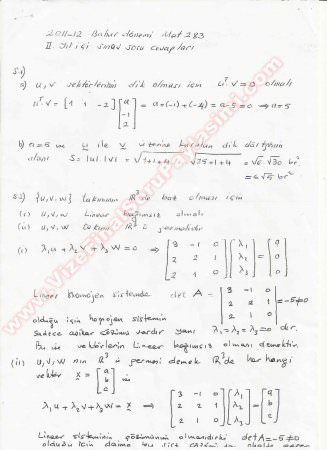 2011-12 Bahar dönemi Mat 283
II. Yıl içi sınav soru cevapları
S-1)
a) u, v vektörlerinin dik olması için uᵀv = 0 olmalı
uᵀv = [1 1 -2] [a -1 2] = a+(-1)+(-4) = a-5 = 0 ⇒ a=5
b) a=5 ve u ile v üzerine kurulan dik dörtgenin
alanı S = |u|.|v| = √1+1+4 . √25+1+4 = √6.√30 br²
= 6√5 br²
S-2) {u,v,w} takımının R³ de baz olması için
(i) u,v,w Lineer bağımsız olmalı
(ii) u,v,w takımı R³ ü germelidir
(i) λ₁u + λ₂v + λ₃w = 0 ⇒ [3 -1 0 2 2 1 2 1 0] [λ₁ λ₂ λ₃] = [0 0 0]
Lineer homojen sistemde det A = |3 -1 0 2 2 1 2 1 0| = -5 ≠ 0
olduğu için homojen sistemin
sadece aşikar çözümü vardır yani λ₁=λ₂=λ₃=0 dır.
Bu ise vektörlerin Lineer bağımsız olması demektir.
(ii) u,v,w nın R³ ü germesi demek R³ de her hangi
vektör x = [a b c] in
λ₁u+λ₂v+λ₃w = x ⇒ [3 -1 0 2 2 1 2 1 0] [λ₁ λ₂ λ₃] = [a b c]
Lineer sisteminin çözümünün olmasıdır det A = -5 ≠ 0
olduğu için daima
www.VizeFinalSoruPaylasimi.com